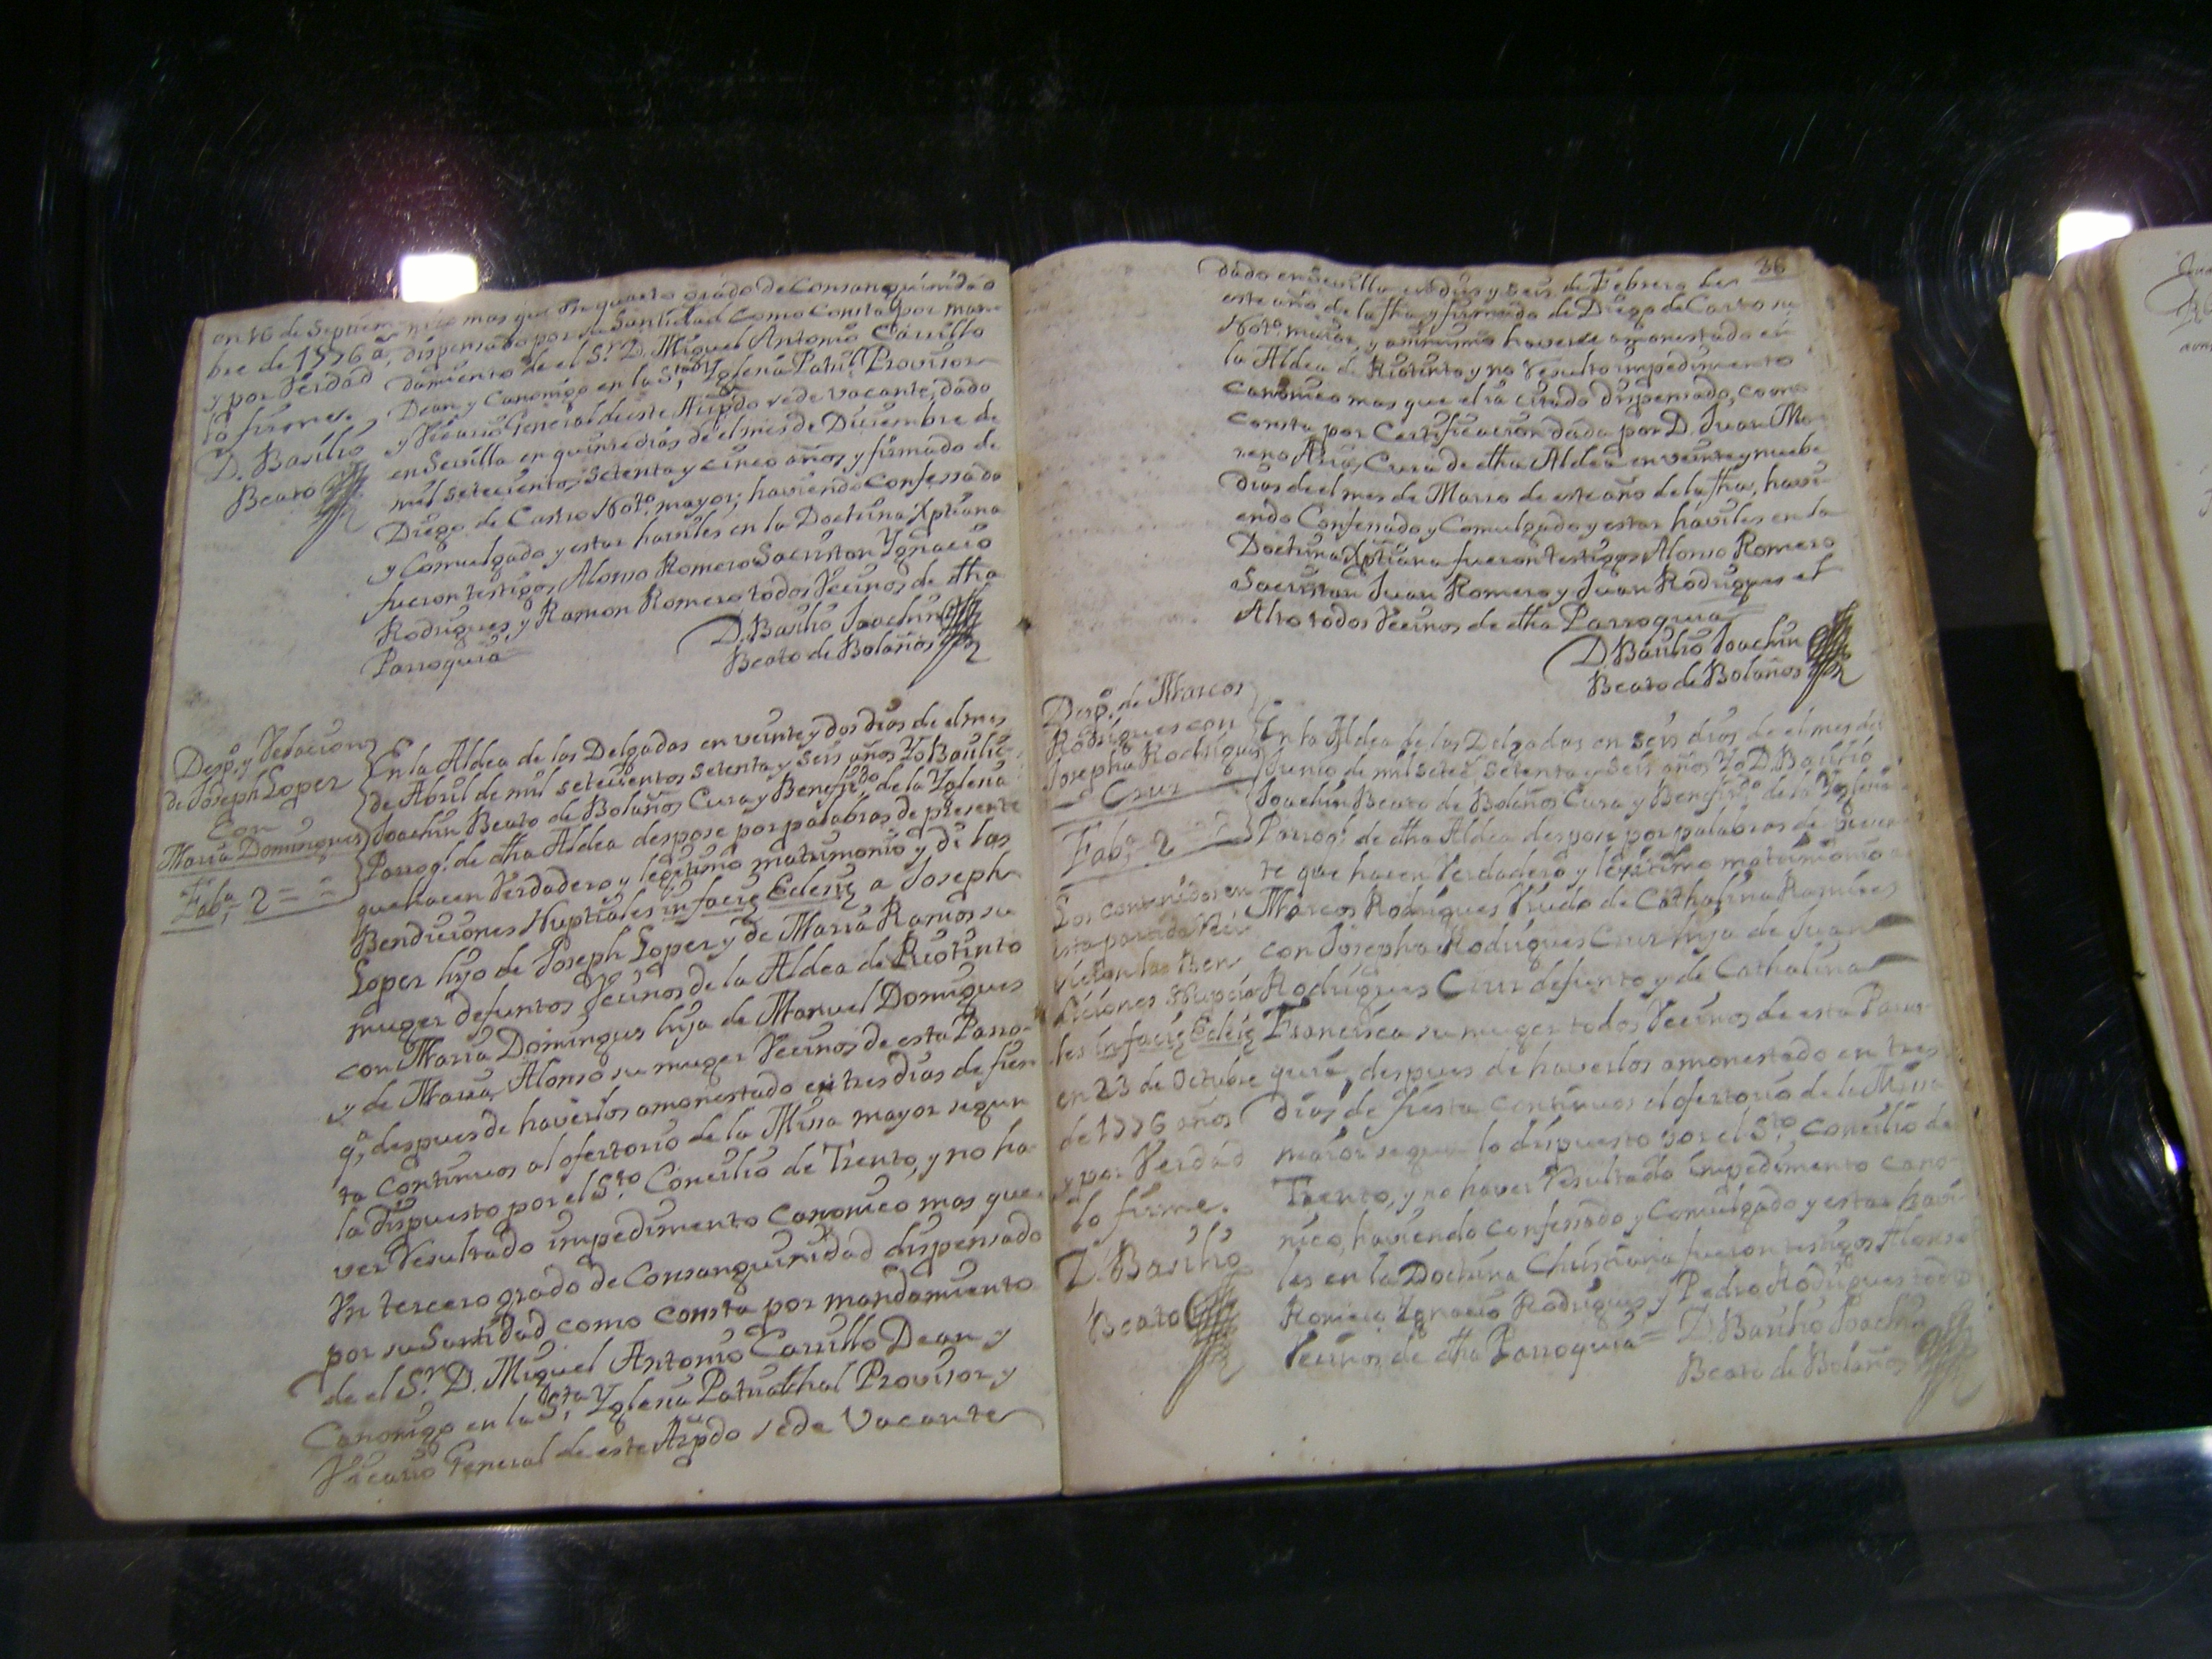 en 16 de Septiem-
bre de 1776 a.s
y por Verdad
lo firme.
D. Basilio
Beato
mas que Vn quarto grado de Consanguinidad
dispensado por su Santidad como Consta por man-
damiento de el S.r D. Miguel Antonio Carrillo
Dean y Canonigo en la S.ta Yglesia Patri.l Provisor
y Vicario General de este Arzpdo sede vacante, dado
en Sevilla en quinze dias de el mes de Diziembre de
mil setecientos setenta y cinco años y firmado de
Diego de Castro Not.o mayor; haviendo Confessado
y Comulgado y estar haviles en la Doctrina Xptiana
fueron testigos Alonso Romero Sacristan Ygnacio
Rodrigues y Ramon Romero todos Vecinos de dha
Parroquia
D. Basilio Joachin
Beato de Bolaños
Desp.o y Velacion
de Joseph Lopez
Con
Maria Domingues
Fab.a 2 =
En la Aldea de las Delgadas en veinte y dos dias de el mes
de Abril de mil setecientos setenta y seis años Yo Basilio
Joachin Beato de Bolaños Cura y Benefi.do de la Yglesia
Parroq.l de dha Aldea despose por palabras de presente
que hacen Verdadero y legitimo matrimonio y di las
Bendiciones Nuptiales in facie Eclesię a Joseph
Lopez hijo de Joseph Lopez y de Maria Ramos su
muger defuntos Vecinos de la Aldea de Riotinto
con Maria Domingues hija de Manuel Domigues
y de Maria Alonso su muger Vecinos de esta Parro-
q.a, despues de haverlos amonestado en tres dias de fies-
ta Continuos al ofertorio de la Missa mayor segun
lo dispuesto por el S.to Concilio de Trento, y no ha-
ver Resultado impedimento Canonico mas que
Vn tercero grado de Consanguinidad dispensado
por su Santidad como consta por mandamiento
de el S.r D. Miguel Antonio Carrillo Dean y
Canonigo en la S.ta Yglesia Patriarchal Provisor y
Vicario General de este Arzpdo sede Vacante
36
dado en Sevilla a dies y seis de Febrero de
este año de la fha y firmado de Diego de Castro su
Not.o maior, y assimismo haverse amonestado en
la Aldea de Riotinto y no Resulto impedimento
canonico mas que el ia citado dispensado, como
consta por Certificacion dada por D. Juan Mo-
reno Arias Cura de dha Aldea en veinte y nuebe
dias de el mes de Marzo de este año de la fha, havi-
endo Confesado y Comulgado y estar haviles en la
Doctrina Xptiana fueron testigos Alonso Romero
Sacristan Juan Romero y Juan Rodrigues el
Alto todos Vecinos de dha Parroquia
D. Basilio Joachin
Beato de Bolaños
Desp.o de Marcos
Rodrigues con
Josepha Rodrigues
Cruz
Fab.a 2
Los contenidos en
esta partida Reci-
vieron las Ben-
diciones Nupcia-
les in facię Eclesię
en 23 de Octubre
de 1776 años
y por Verdad
lo firme.
D. Basilio
Beato
En la Aldea de las Delgadas en seis dias de el mes de
Junio de mil setec.s setenta y seis años Yo D. Basilio
Joachin Beato de Bolaños Cura y Benefi.do de la Yglesia
Parroq.l de dha Aldea despose por palabras de presen-
te que hacen Verdadero y lexitimo matrimonio a
Marcos Rodrigues Viudo de Cathalina Ramires
con Josepha Rodrigues Cruz hija de Juan
Rodrigues Cruz defunto y de Cathalina
Francisca su muger todos Vecinos de esta Parro-
quia, despues de haverlos amonestado en tres
dias de fiesta continuos al ofertorio de la Missa
maior segun lo dispuesto por el S.to Concilio de
Trento, y no haver Resultado impedimento cano-
nico, haviendo confessado y Comulgado y estar havi-
les en la Doctrina Christiana fueron testigos Alonso
Romero Ygnacio Rodrigues y Pedro Rodrigues todos
Vecinos de dha Parroquia =
D. Basilio Joachin
Beato de Bolaños